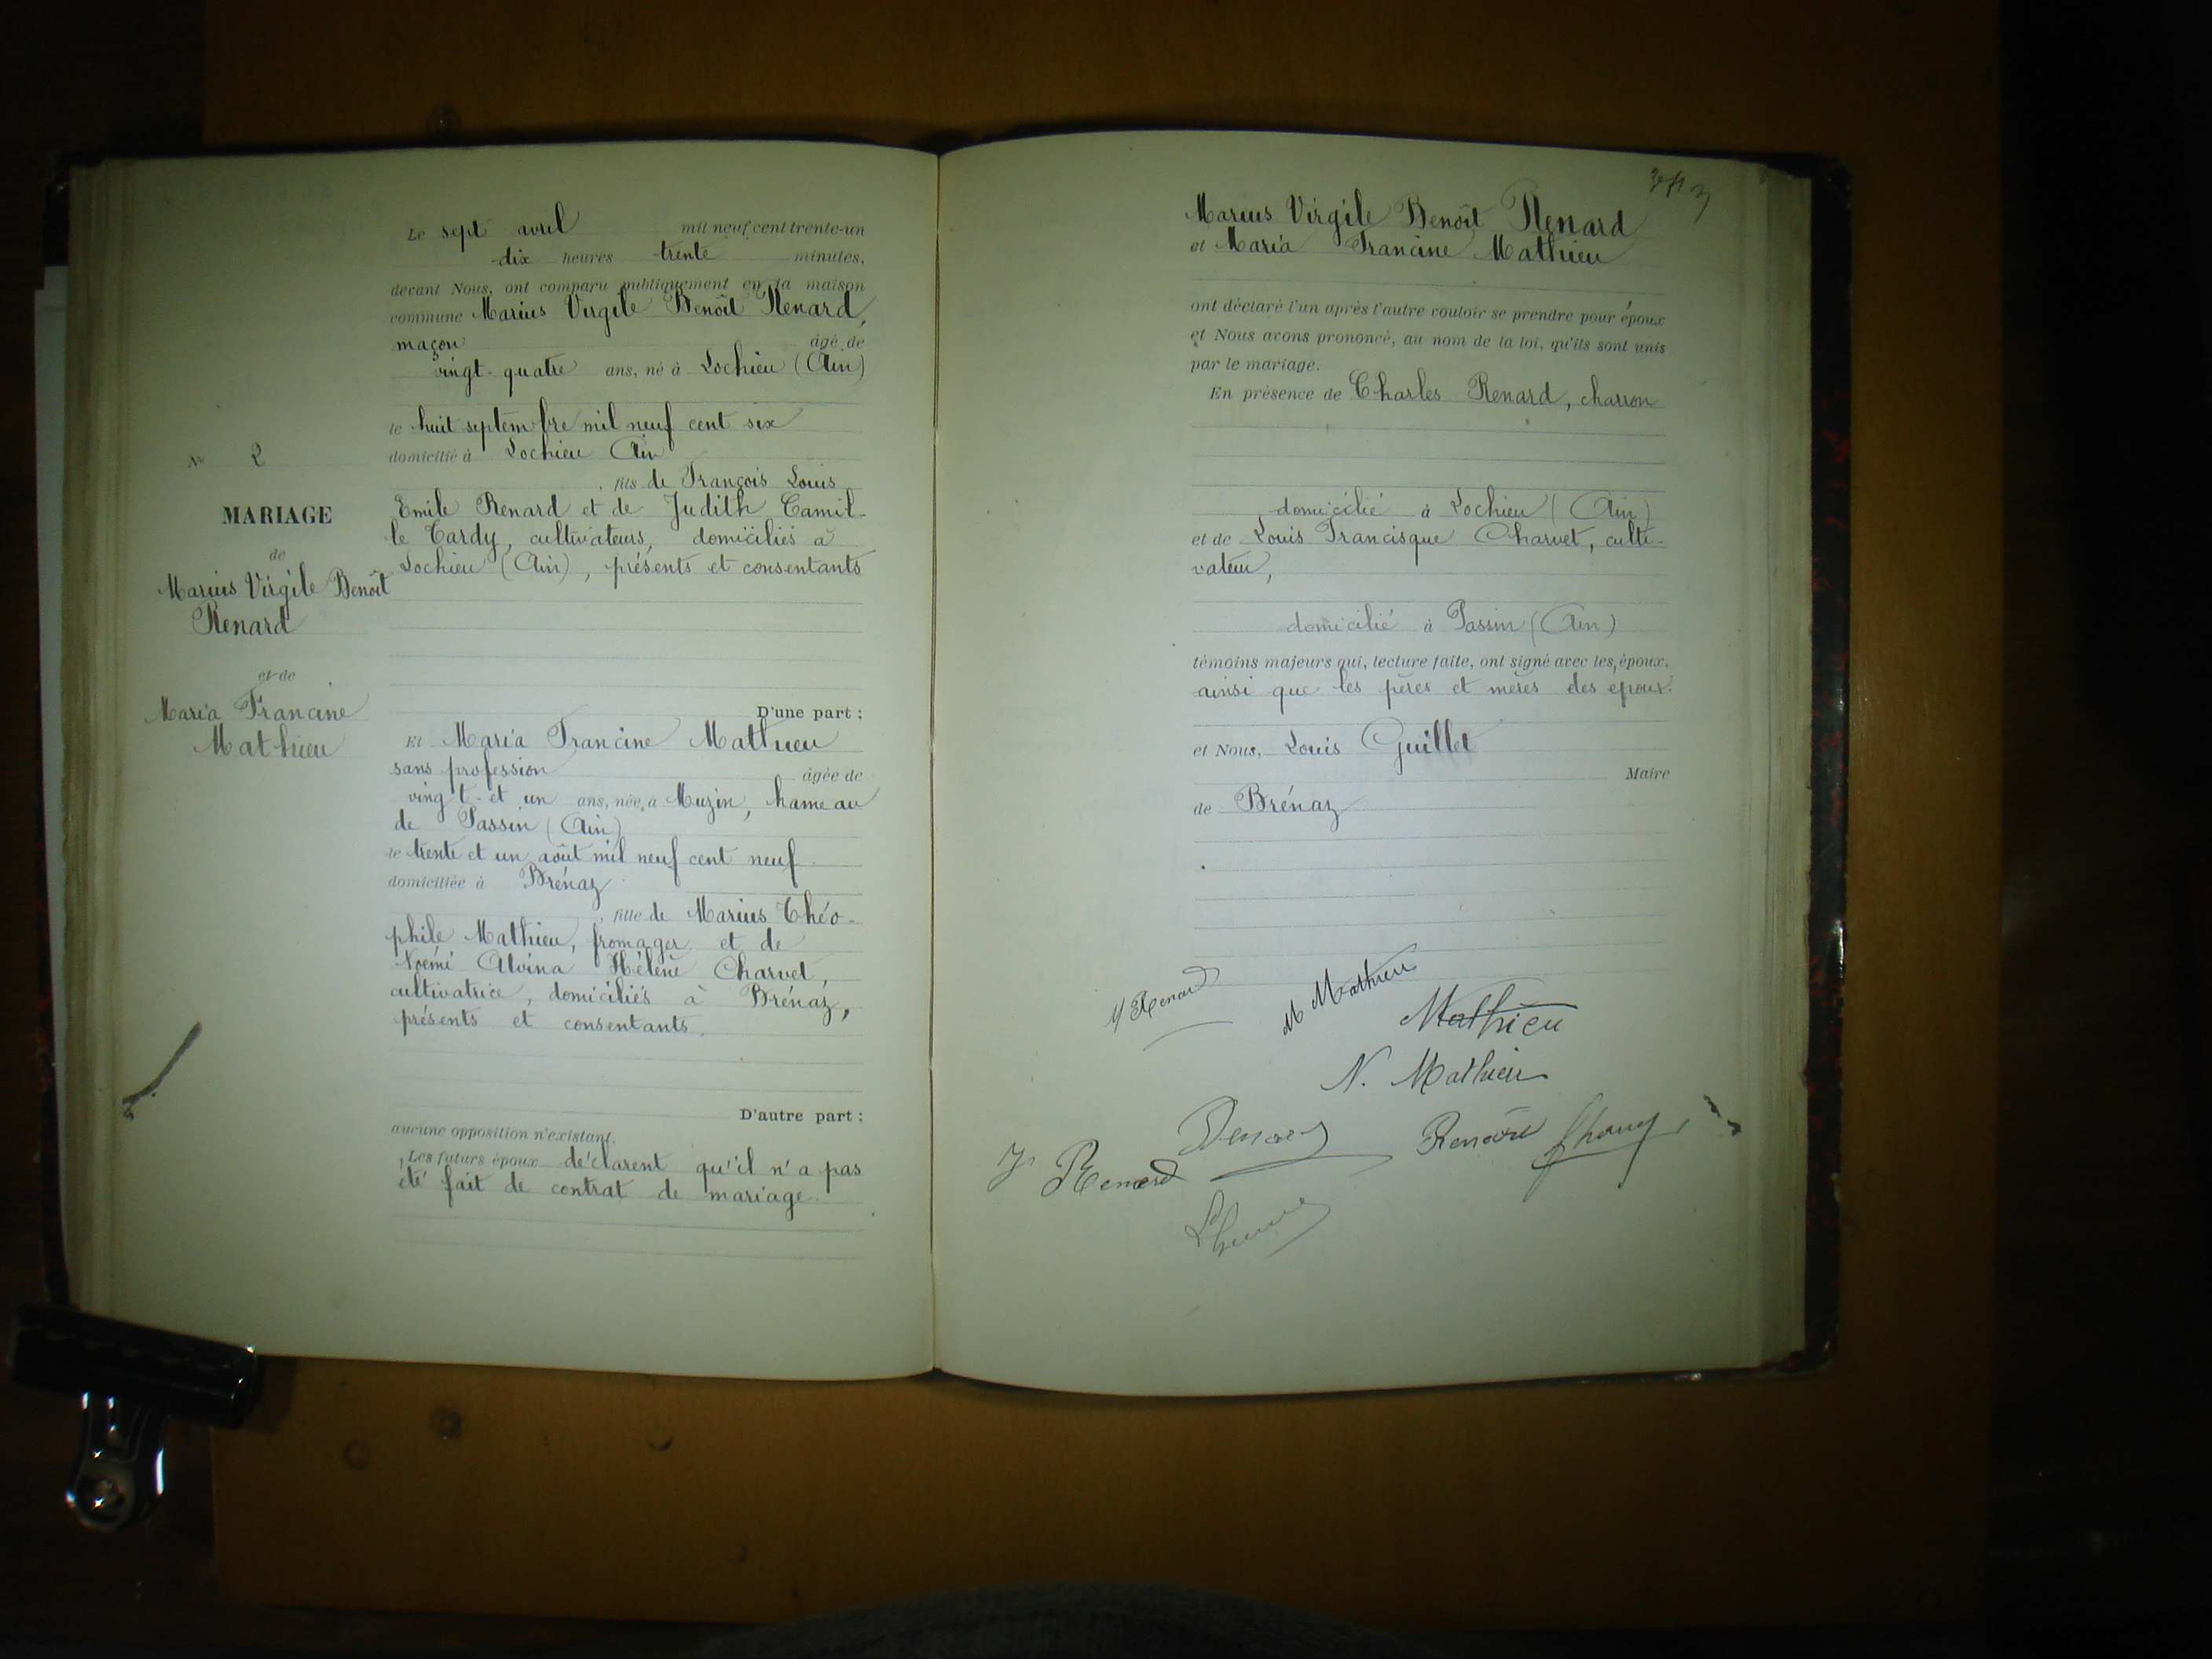 N° 2
MARIAGE
de
Marius Virgile Benoît
Renard
et de
Maria Francine
Mathieu
Le sept avril mil neuf cent trente-un
dix heures trente minutes,
devant Nous, ont comparu publiquement en la maison
commune Marius Virgile Benoît Renard,
maçon âgé de
vingt-quatre ans, né à Lochieu (Ain)
le huit septembre mil neuf cent six
domicilié à Lochieu Ain
, fils de François Louis
Emile Renard et de Judith Camil-
le Tardy, cultivateurs, domiciliés à
Lochieu (Ain), présents et consentants
D'une part ;
Et Maria Francine Mathieu
sans profession âgée de
vingt-et un ans, née à Muzin, hameau
de Passin (Ain)
le trente et un août mil neuf cent neuf
domiciliée à Brénaz
, fille de Marius Théo-
phile Mathieu, fromager et de
Noémi Alvina Hélène Charvet,
cultivatrice, domiciliés à Brénaz,
présents et consentants.
D'autre part ;
aucune opposition n'existant.
Les futurs époux déclarent qu'il n'a pas
été fait de contrat de mariage.
Marius Virgile Benoît Renard
et Maria Francine Mathieu
ont déclaré l'un après l'autre vouloir se prendre pour époux
et Nous avons prononcé, au nom de la loi, qu'ils sont unis
par le mariage.
En présence de Charles Renard, charron
domicilié à Lochieu (Ain)
et de Louis Francisque Charvet, culti-
vateur,
domicilié à Passin (Ain)
témoins majeurs qui, lecture faite, ont signé avec les époux,
ainsi que les pères et mères des époux.
et Nous, Louis Guillet
Maire
de Brénaz
M Renard
M Mathieu
Mathieu
N. Mathieu
Renard
J Renard